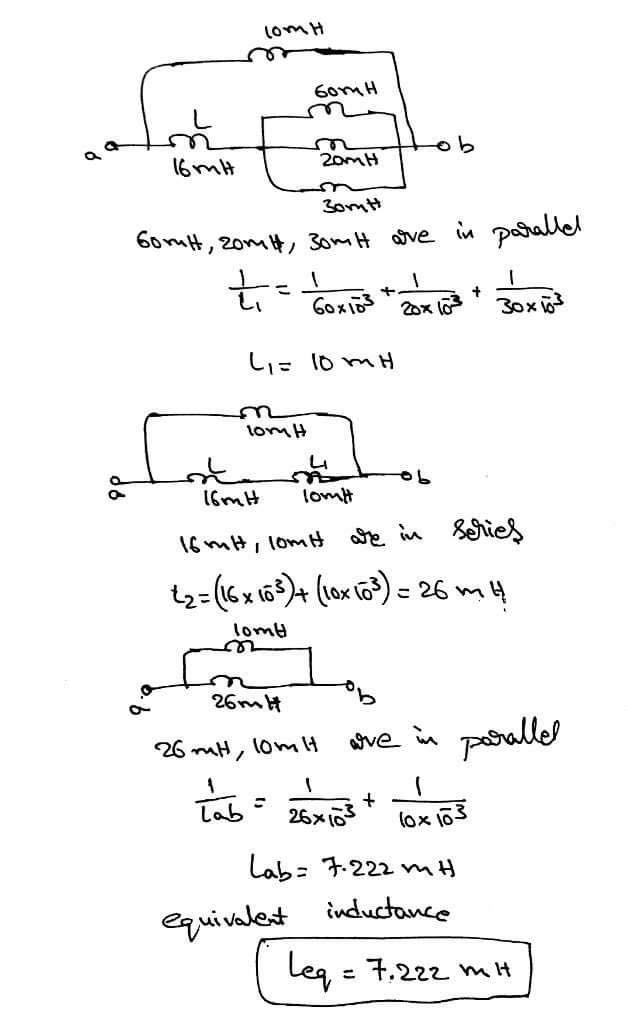 10mH
60mH
L
a b
16mH 20mH
30mH
60mH, 20mH, 30mH are in parallel
1/L1 = 1/60x10^-3 + 1/20x10^-3 + 1/30x10^-3
L1 = 10 mH
10mH
L L1
a b
16mH 10mH
16mH, 10mH are in series
L2 = (16 x 10^-3) + (10x10^-3) = 26 mH
10mH
a b
26mH
26mH, 10mH are in parallel
1/Lab = 1/26x10^-3 + 1/10x10^-3
Lab = 7.222 mH
equivalent inductance
Leq = 7.222 mH